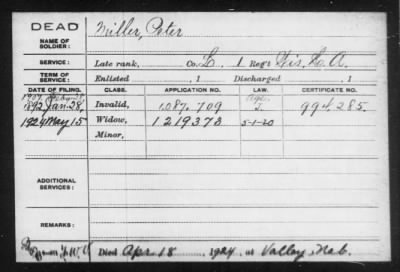 DEAD
NAME OF SOLDIER: Miller, Peter
SERVICE: Late rank, Co. L. 1 Reg't Wis. H. A.
TERM OF SERVICE: Enlisted , 1 Discharged , 1
DATE OF FILING. CLASS. APPLICATION NO. LAW. CERTIFICATE NO.
1907
Age.
1892 Jan-28, Invalid, 1.087.709 J. 994.285.
1924 May 15 Widow, 1219373 5-1-20
Minor,
ADDITIONAL SERVICES:
REMARKS:
Died Apr. 18 1924, at Valley, Neb.